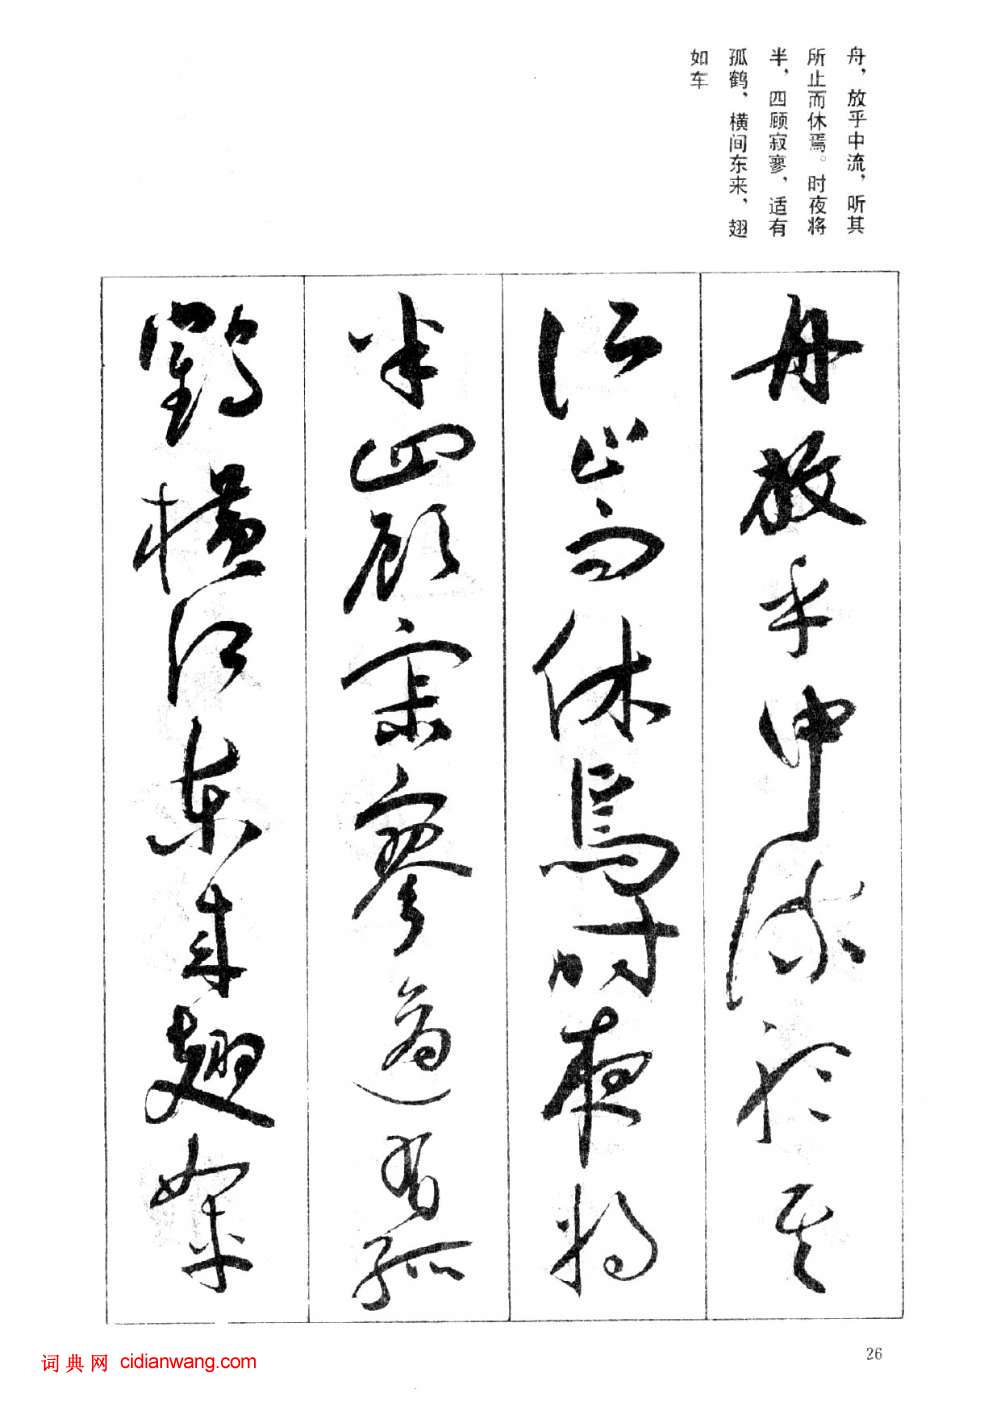 舟，放乎中流，听其
所止而休焉。时夜将
半，四顾寂寥，适有
孤鹤，横间东来，翅
如车
舟放乎中流聽其
所止而休焉時夜將
半四顧寂寥適有孤
鶴橫江東來翅如車
26
词典网 cidianwang.com